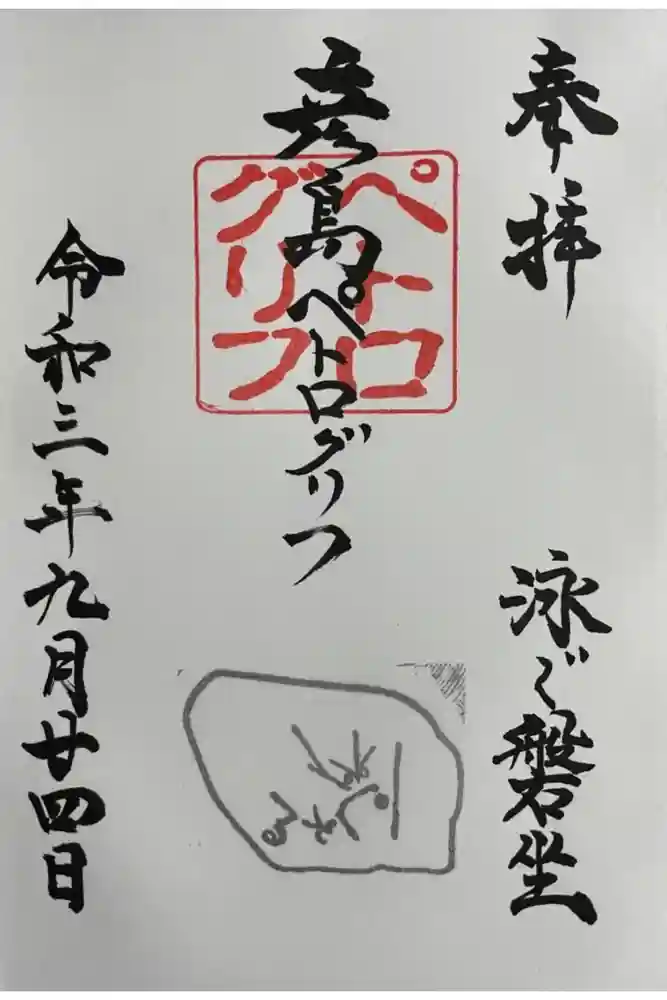 奉拝
泳ぐ磐坐
彦島ペトログリフ
ペトログリフ
令和三年九月廿四日